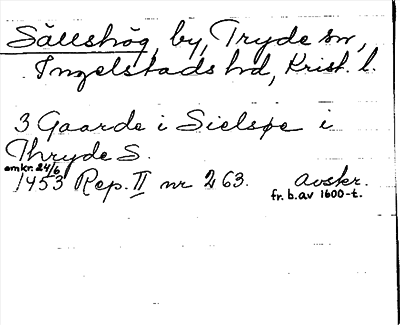 Sällshög, by, Tryde sn,
Ingelstads hd, Krist. l.
3 Gaarde i Sielsøe i
Thryde S.
omkr. 24/6
1453 Rep. II nr 263. avskr.
fr. b. av 1600-t.